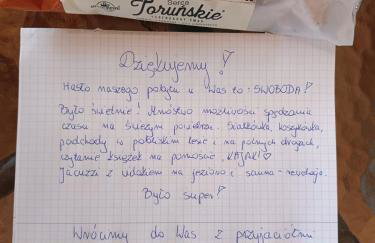 Serca
Toruńskie
Dziękujemy!
Hasło naszego pobytu u Was to: SWOBODA!
Było świetnie! Mnóstwo możliwości spędzania
czasu na świeżym powietrzu. Siatkówka, koszykówka,
podchody w pobliskim lesie i na polnych drogach,
czytanie książek na pomoście, KAJAKI ♡
Jacuzzi z widokiem na jezioro i sauna - rewelacja.
Było super!
Wrócimy do Was z przyjaciółmi